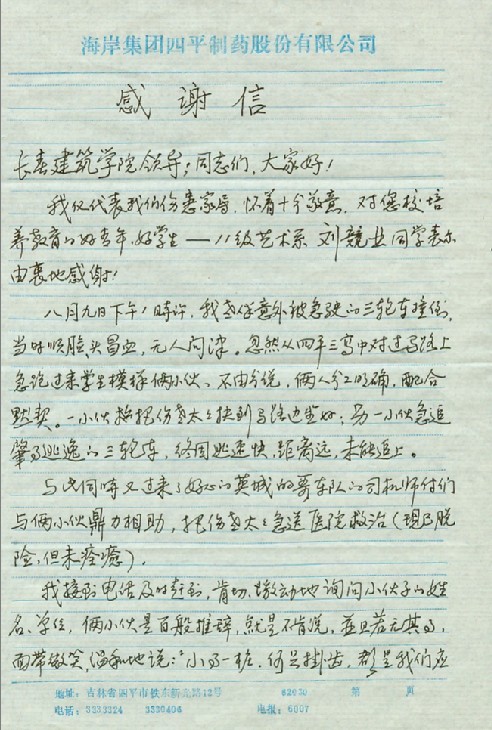 海岸集团四平制药股份有限公司
感谢信
长春建筑学院领导,同志们,大家好!
我仅代表我们伤患家属,怀着十分敬意,对您校培
养教育的好青年、好学生——11级艺术系 刘競业同学表示
由衷地感谢!
八月九日下午1時许,我老伴意外被急驶的三轮车撞倒,
当時顺脸头冒血,无人问津。忽然从四平三高中对过马路上
急跑过来学生模样俩小伙、不由分说,俩人分工明确,配合
默契。一小伙搀把伤老太太扶到马路边坐好;另一小伙急追
肇事逃逸的三轮车,终因逃速快,距离远,未能追上。
与此同時又过来了好心的英城的哥车队的司机师付们
与俩小伙鼎力相助,把伤老太太急送医院救治(现已脱
险,但未痊癒)。
我接到电话及时赶到,肯切、激动地询问小伙子的姓
名、学位,俩小伙是百般推辞,就是不肯说,並且若无其事,
面带微笑,温和地说:"小事一桩,何足掛齿,都是我们应
地址:吉林省四平市铁东新光路12号 62030 第 页
电话:3333324 3330406 电报:6007